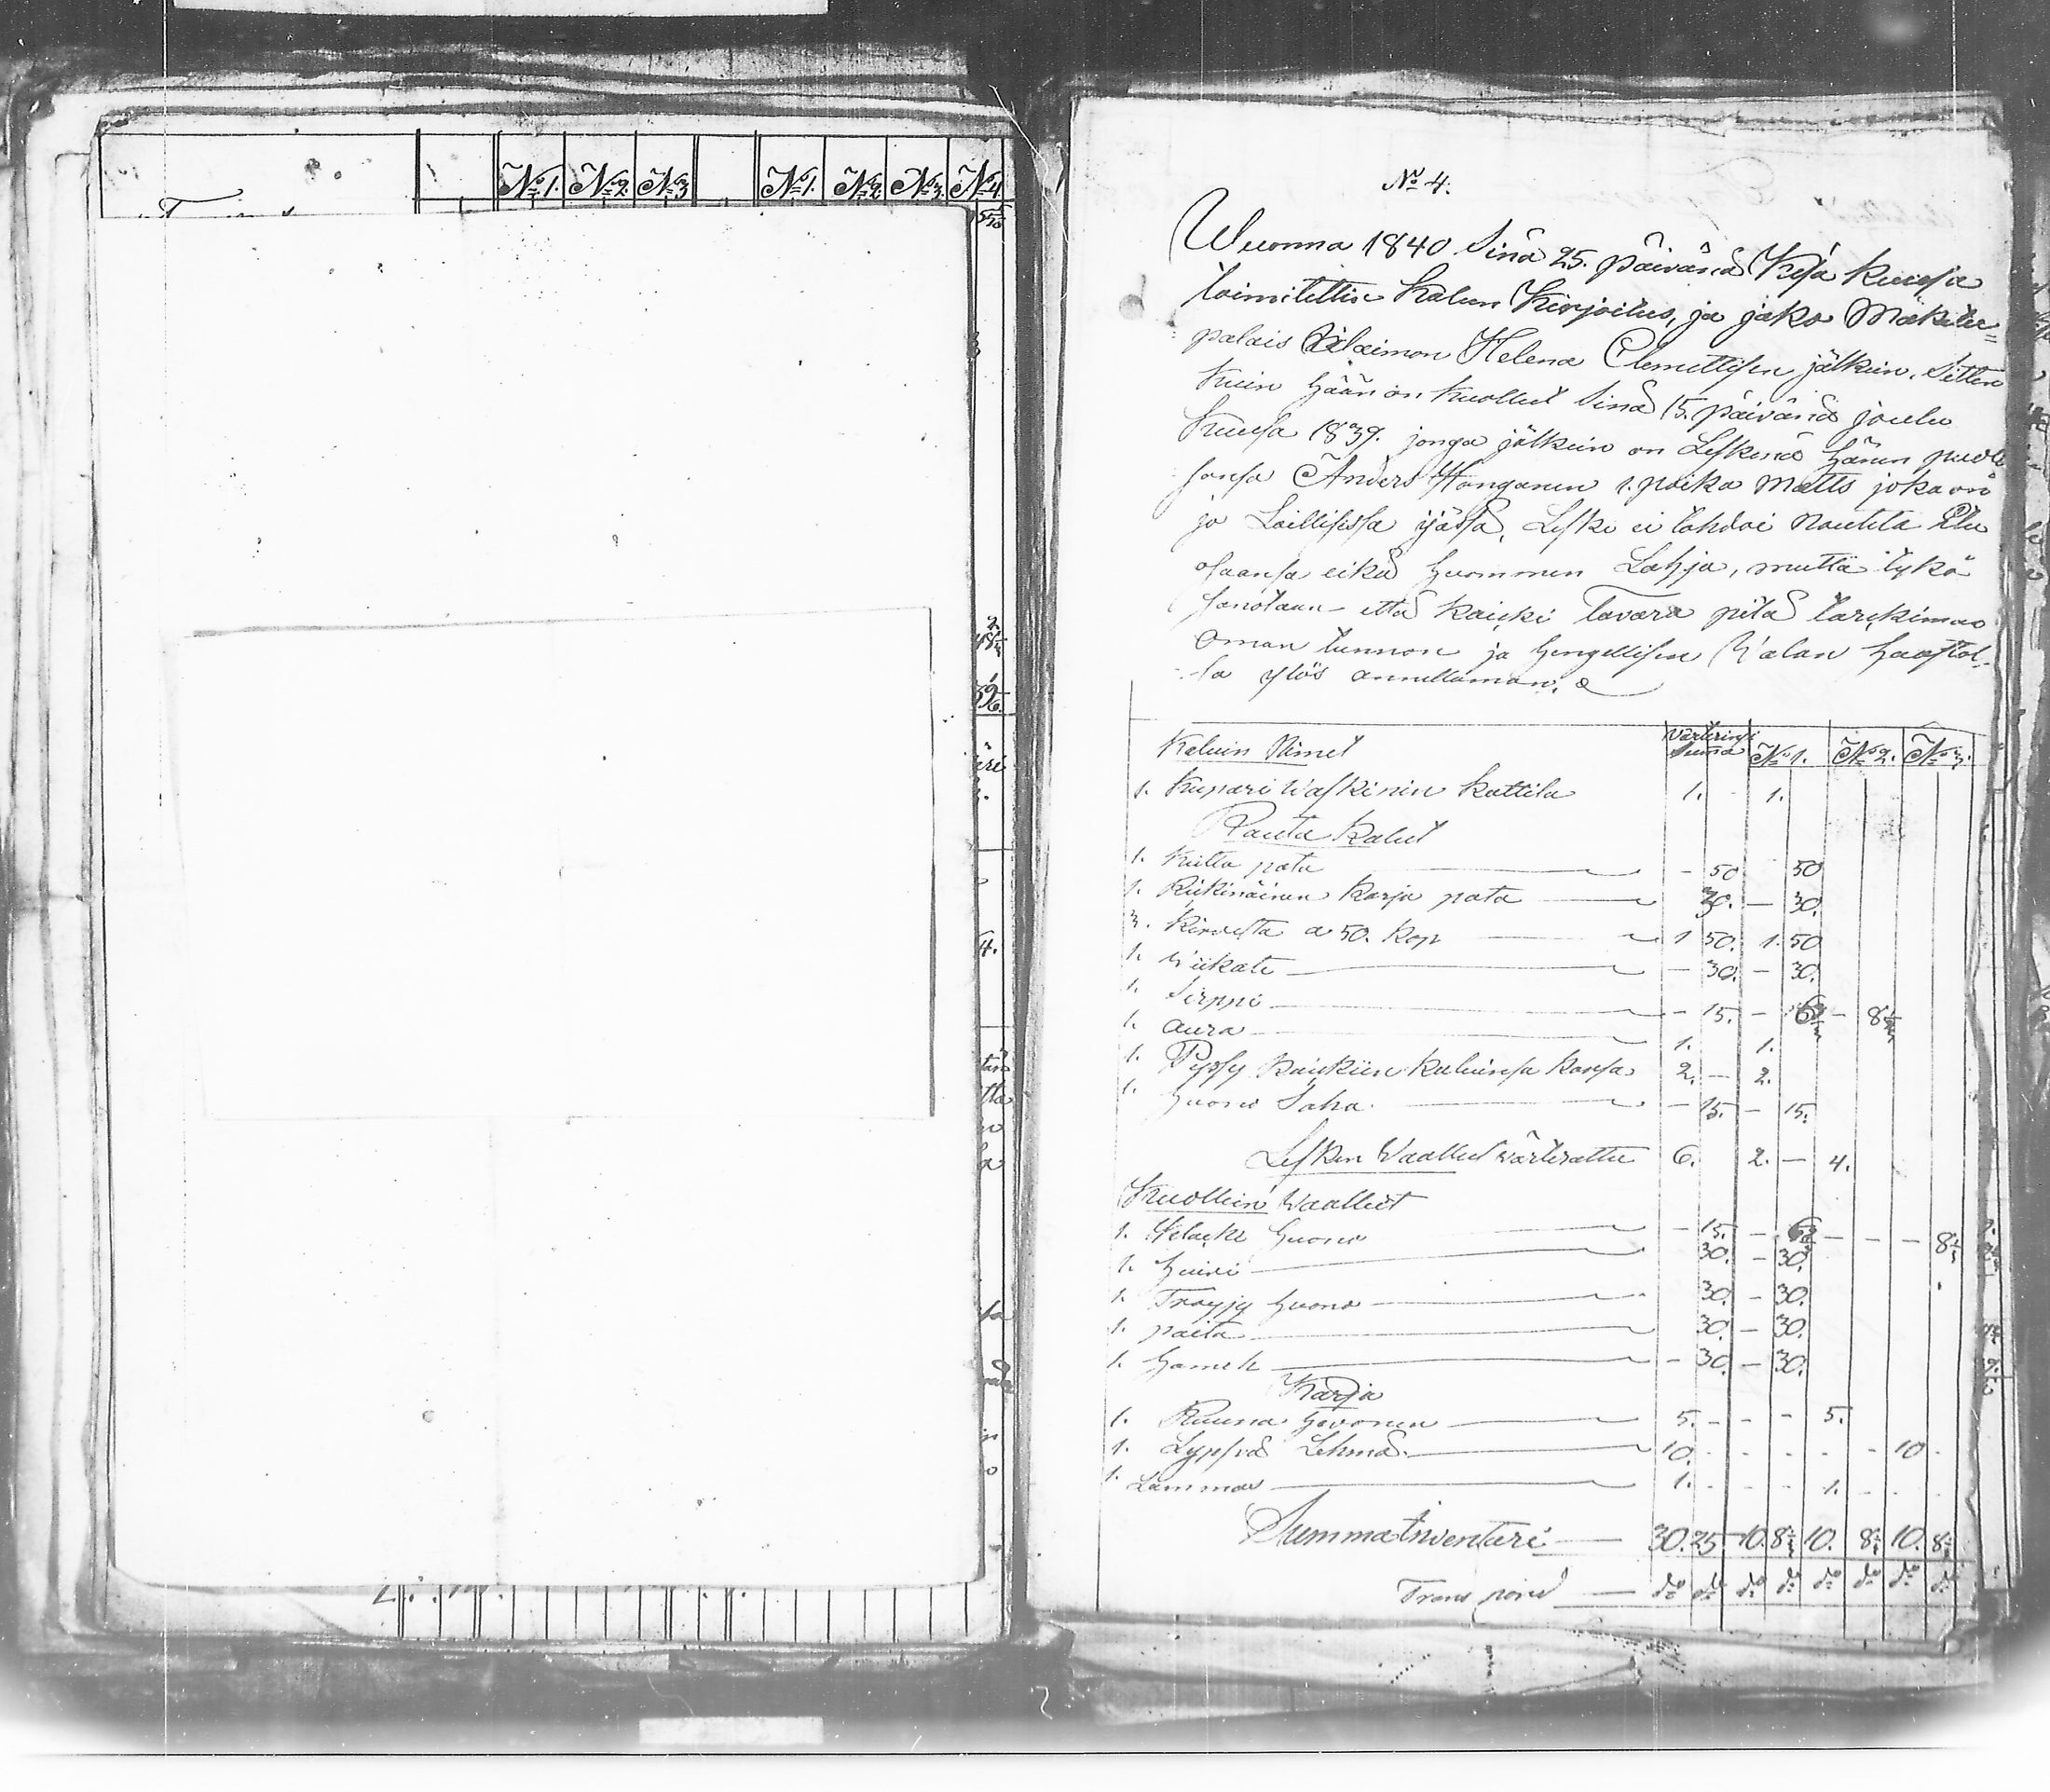 No 1. No 2. No 3 No 1. No 2. No 3. No 4
No 4.
Wuonna 1840 Sinä 25. päivänä Kesä kuusa
toimitettin Kalun Kirjoitus, ja jako Mäkitu=
palais Waimon Helena Clemettisen jälkein. Sitten
kuin hään on kuollut Sinä 15. päivänä joulu
kuusa 1839. jonga jälkein on Leskenä hänen puoli
sonsa Anders Hanganen 1. poika Matts joka on
jo Laillisissa ijässä, Leski ei tahdoi nautita Etu
osaansa eikä huommen Lahja, mutta tykö
sanotaan - että kaicki Tavara pitä tarckimao
oman tunnon ja hengellisen Walan haastol-
la ylös annettaman.
Kaluin Nimet Wärteringi Suma No 1. No 2. No 3.
1. Kupari Waskinin kattila 1. - 1.
Rauta kalut
1. Kulta pata - 50 50
1. Rickinäinen karja pata 30. - 30.
3. Kirvestä a 50. kop 1 50. 1. 50
1. Wiikate - 30. - 30.
1. Sirppi - 15. - 6 2/3 - 8 1/3
1. aura 1. 1.
1. Pyssy kaickiin kaluinsa kansa 2. - 2.
1. huono Saha - 15. - 15.
Lesken Waattet wärterattu 6. 2. - 4.
Kuollein Waatteet
1. huono - 15. - 6 2/3 - - - 8 1/3
1. huivi 30. - 30.
1. Tröyjy huono 30. - 30.
1. paita 30. - 30.
1. hameh - 30. - 30.
Karja
1. Ruuna hevonen 5. - - - 5.
1. Lypsvä Lehmä 10. - - - - - 10 -
1. Lammas 1. - - - 1. - - -
Summa Inventari 30. 25 10. 8 1/3 10. 8 1/3 10. 8 1/3
Trans pord do do do do do do do do